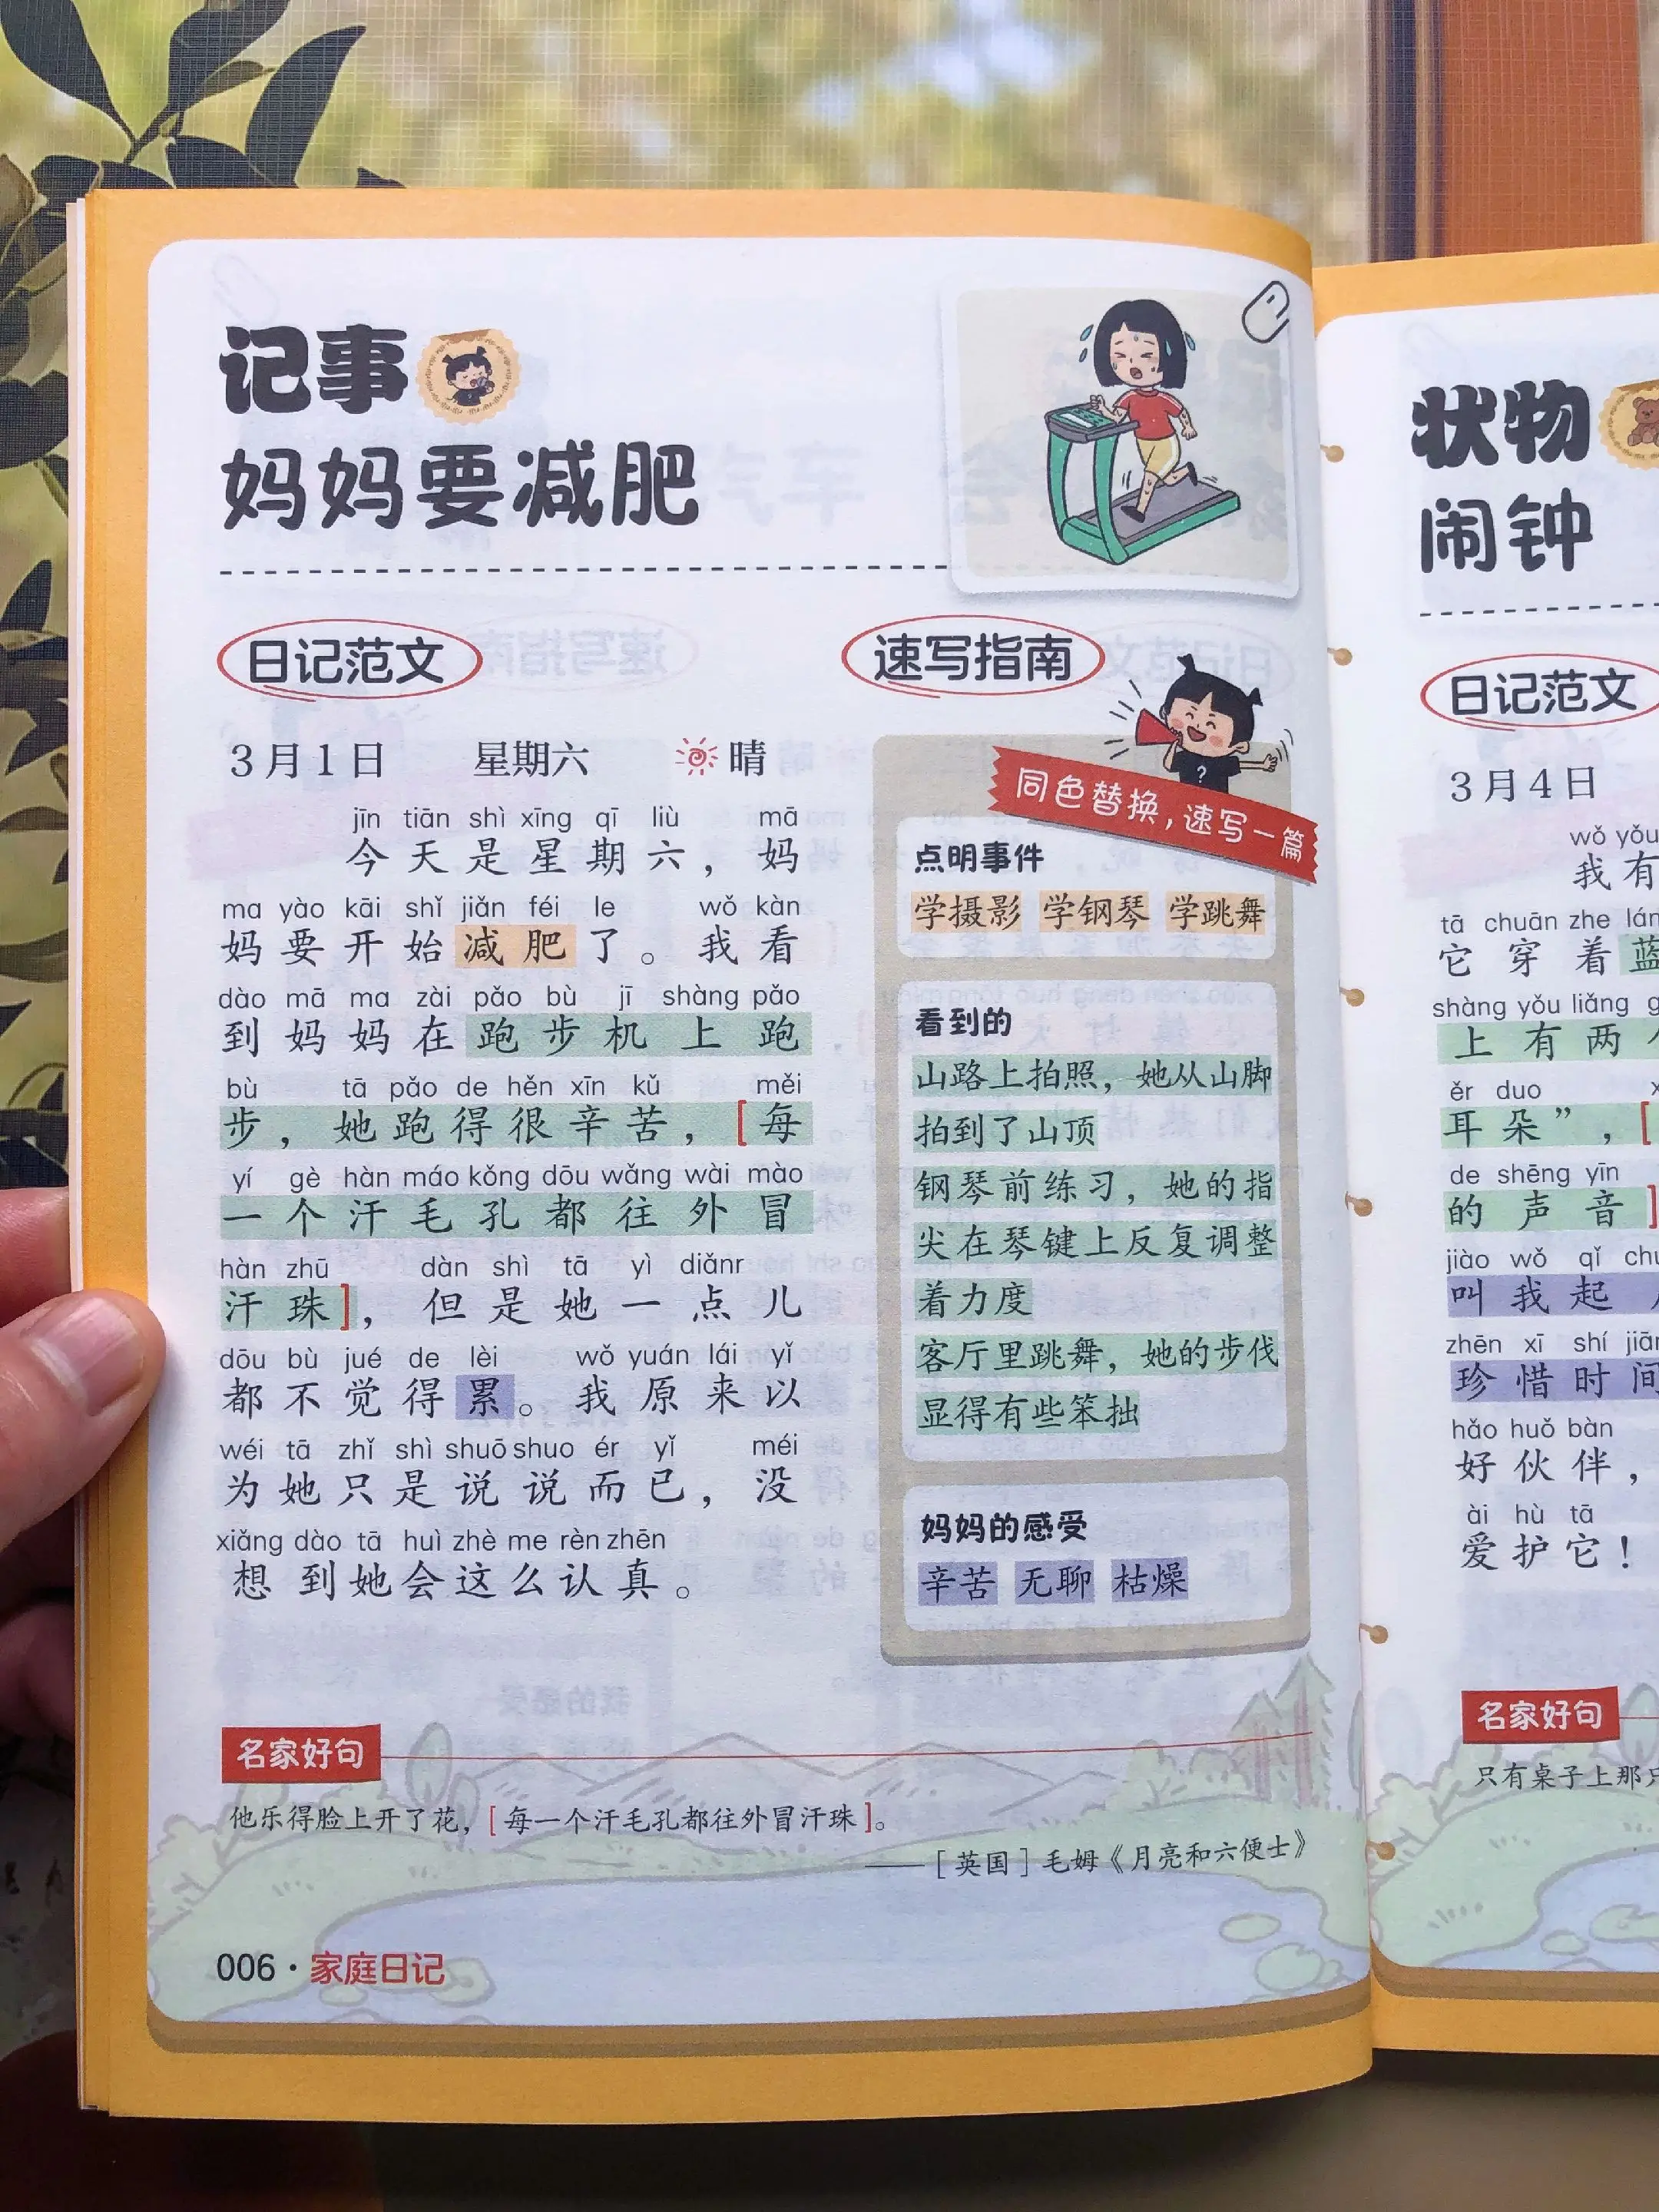 记事
妈妈要减肥
日记范文
3月1日 星期六 晴
jīn tiān shì xīng qī liù mā
今天是星期六，妈
ma yào kāi shǐ jiǎn féi le wǒ kàn
妈要开始减肥了。我看
dào mā ma zài pǎo bù jī shàng pǎo
到妈妈在跑步机上跑
bù tā pǎo de hěn xīn kǔ měi
步，她跑得很辛苦，[每
yí gè hàn máo kǒng dōu wǎng wài mào
一个汗毛孔都往外冒
hàn zhū dàn shì tā yì diǎnr
汗珠]，但是她一点儿
dōu bù jué de lèi wǒ yuán lái yǐ
都不觉得累。我原来以
wéi tā zhǐ shì shuō shuo ér yǐ méi
为她只是说说而已，没
xiǎng dào tā huì zhè me rèn zhēn
想到她会这么认真。
速写指南
同色替换，速写一篇
点明事件
学摄影 学钢琴 学跳舞
看到的
山路上拍照，她从山脚
拍到了山顶
钢琴前练习，她的指
尖在琴键上反复调整
着力度
客厅里跳舞，她的步伐
显得有些笨拙
妈妈的感受
辛苦 无聊 枯燥
名家好句
他乐得脸上开了花，[每一个汗毛孔都往外冒汗珠]。
——[英国]毛姆《月亮和六便士》
006·家庭日记
状物
闹钟
日记范文
3月4日
wǒ yǒu
我有
tā chuān zhe lán
它穿着蓝
shàng yǒu liǎng
上有两
ěr duo
耳朵”，[
de shēng yīn
的声音]
jiào wǒ qǐ
叫我起
zhēn xī shí jiān
珍惜时间
hǎo huǒ bàn
好伙伴，
ài hù tā
爱护它！
名家好句
只有桌子上那只